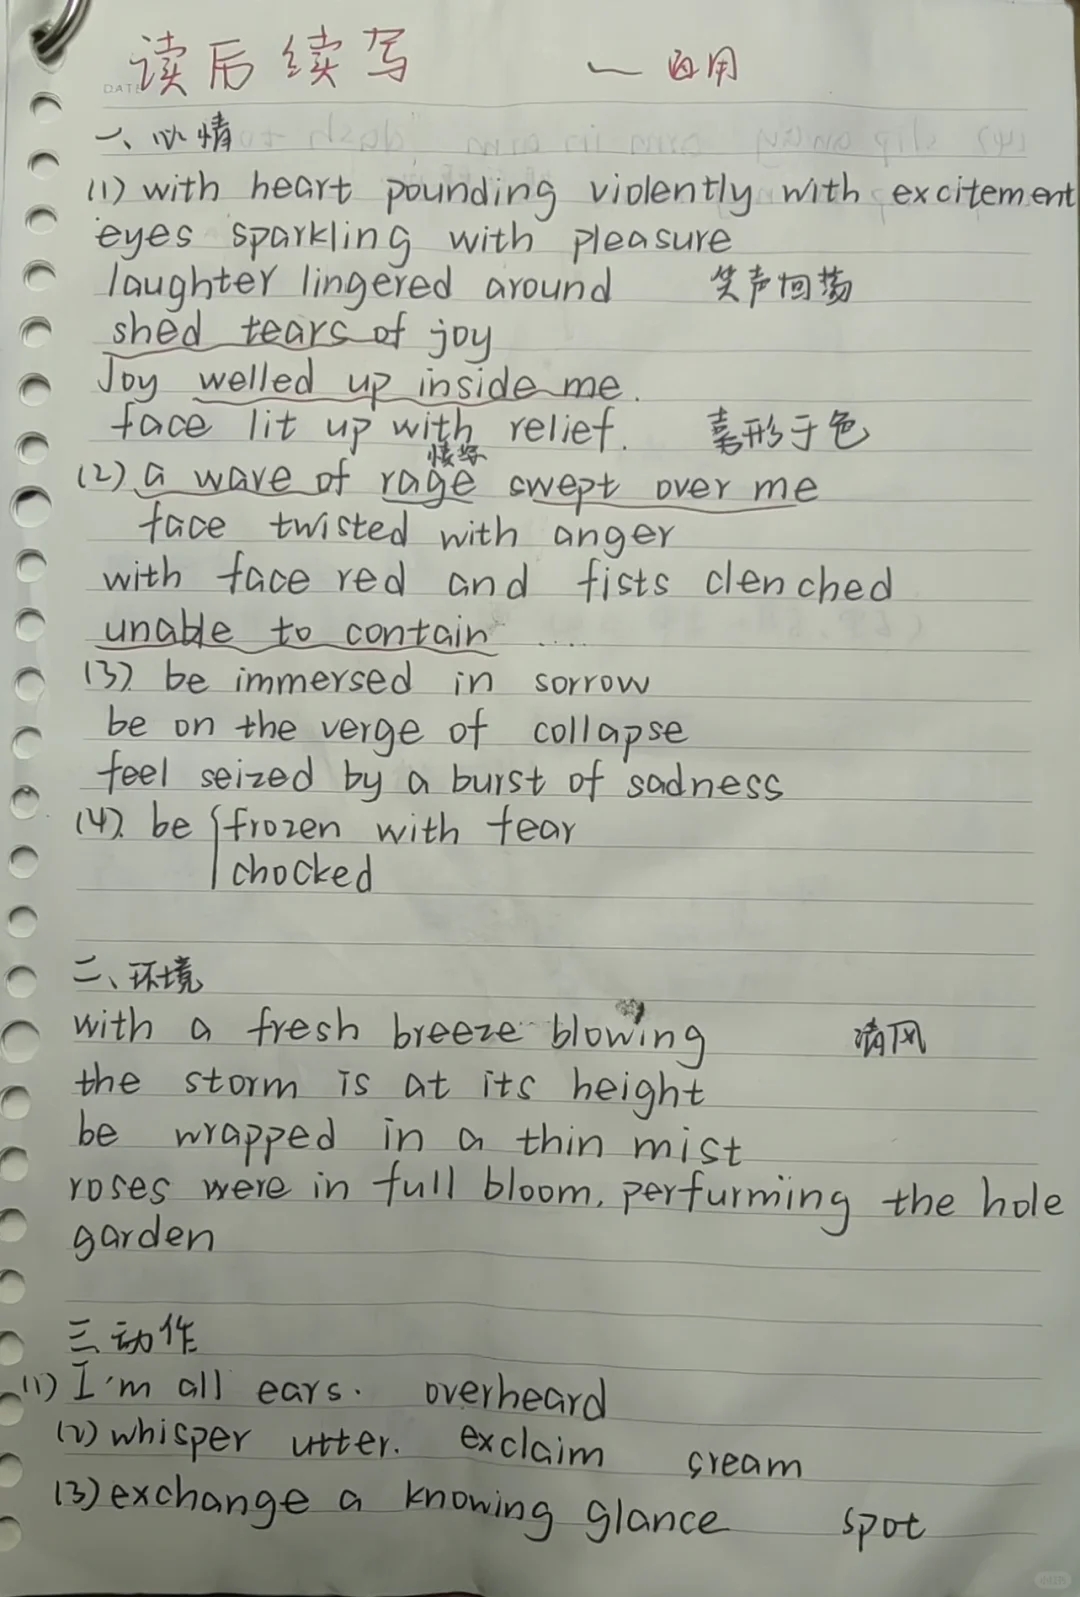 读后续写 — 应用
DATE
一、心情
(1) with heart pounding violently with excitement
eyes sparkling with pleasure
laughter lingered around 笑声回荡
shed tears of joy
Joy welled up inside me.
face lit up with relief. 喜形于色
(2) a wave of rage swept over me
face twisted with anger
with face red and fists clenched
unable to contain ....
(3). be immersed in sorrow
be on the verge of collapse
feel seized by a burst of sadness
(4). be { frozen with fear
chocked
二、环境
with a fresh breeze blowing 清风
the storm is at its height
be wrapped in a thin mist
roses were in full bloom, perfurming the hole
garden
三、动作
(1) I'm all ears. overheard
(2) whisper utter. exclaim cream
(3) exchange a knowing glance spot